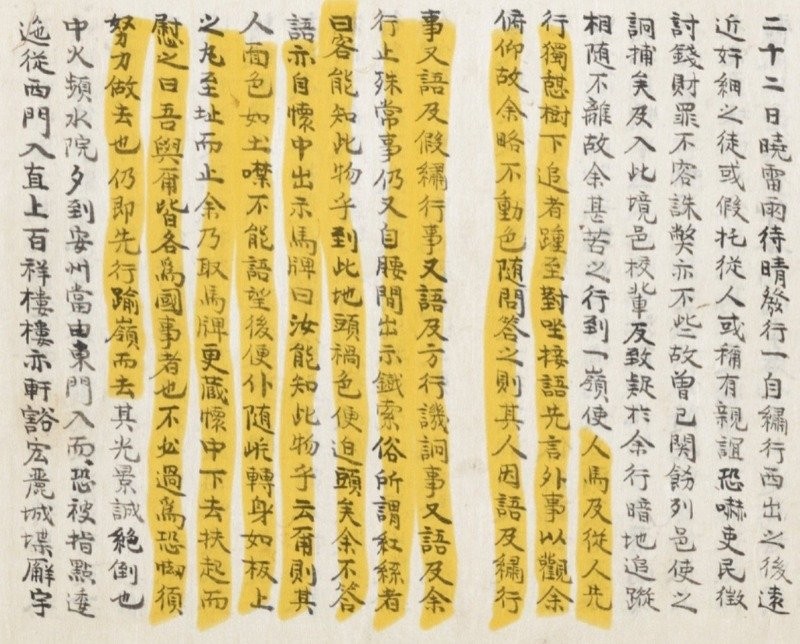 二十二日曉雷雨待晴發行一自繡行西出之後遠
近奸細之徒或假托從人或稱有親誼恐嚇吏民徵
討錢財罪不容誅弊亦不些故曾已関飭列邑使之
詗捕矣及入此境邑校輩反致疑於余行暗地追蹤
相随不離故余甚苦之行到一嶺使人馬及從人先
行獨憩樹下追者踵至對坐接語先言外事以觀余
俯仰故余略不動色随問答之則其人因語及繡行
事又語及假繡行事又語及方行譏詗事又語及余
行止殊常事仍又自腰間出示鐵索俗所謂紅絲者
曰客能知此物乎到此地頭禍色便迫頭矣余不答
語亦自懷中出示馬牌曰汝能知此物乎云爾則其
人面色如土噤不能語望後便仆随屹轉身如板上
之丸至址而止余乃取馬牌更蔵懷中下去扶起而
慰之曰吾與爾皆各爲國事者也不必過爲恐㥘須
努力做去也仍即先行踰嶺而去其光景誠絶倒也
中火頻水院夕到安州當由東門入而恐被指點逶
迤從西門入直上百祥樓樓亦軒豁宏麗城堞廨宇